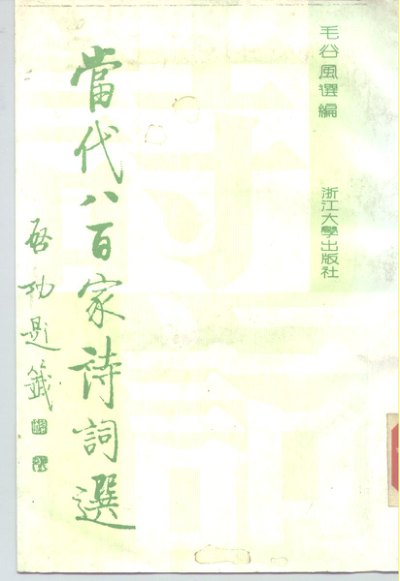 毛谷風選編
浙江大學出版社
當代八百家詩詞選
啓功題籤